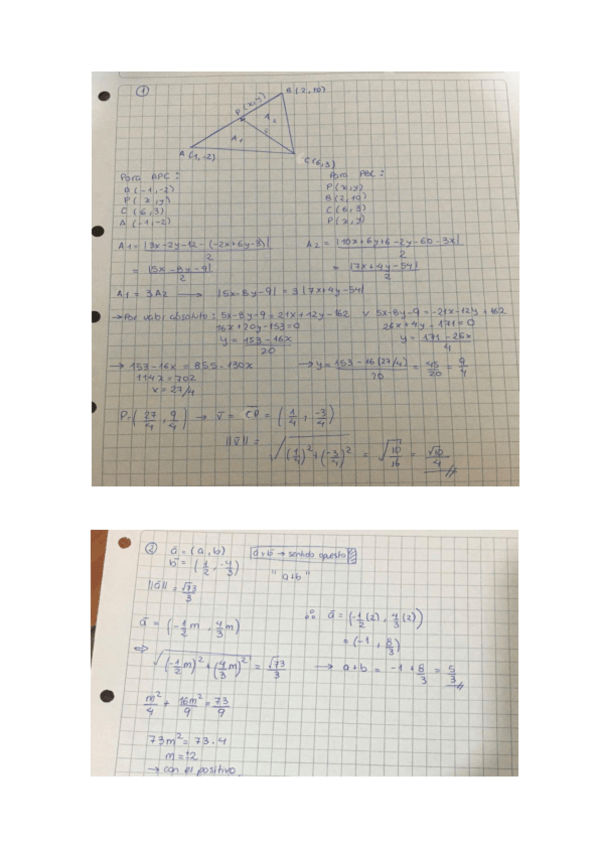 ①
B(2,10)
P(x,y)
A₂
A₁
A(1,-2)
C(6,3)
Para APC:
A(-1,-2)
P(x,y)
C(6,3)
A(-1,-2)
Para PBC:
P(x,y)
B(2,10)
C(6,3)
P(x,y)
A1 = |3x-2y-12-(-2x+6y-3)| / 2
= |5x-8y-9| / 2
A2 = |10x+6y+6-2y-60-3x| / 2
= |7x+4y-54| / 2
A1 = 3A2 → |5x-8y-9| = 3|7x+4y-54|
→ Por valor absoluto: 5x-8y-9 = 21x+12y-162 v 5x-8y-9 = -21x-12y+162
16x+20y-153=0
y = 153-16x / 20
26x+4y-171=0
y = 171-26x / 4
→ 153-16x = 855-130x
114x = 702
x = 27/4
→ y = 153-16(27/4) / 20 = 45/20 = 9/4
P=(27/4, 9/4) → v̄ = CP = (1/4, -3/4)
||v̄|| = √((1/4)²+(-3/4)²) = √(10/16) = √10/4 //
②
ā = (a,b)
b̄ = (1/2, -4/3)
||ā|| = √73/3
ā v b̄ → sentido opuesto
"a+b"
ā = (-1/2 m, 4/3 m)
⇒ √((-1/2 m)² + (4/3 m)²) = √73/3
m²/4 + 16m²/9 = 73/9
73m² = 73.4
m = ±2
→ con el positivo
∴ ā = (-1/2 (2), 4/3 (2))
= (-1, 8/3)
→ a+b = -1+8/3 = 5/3 //